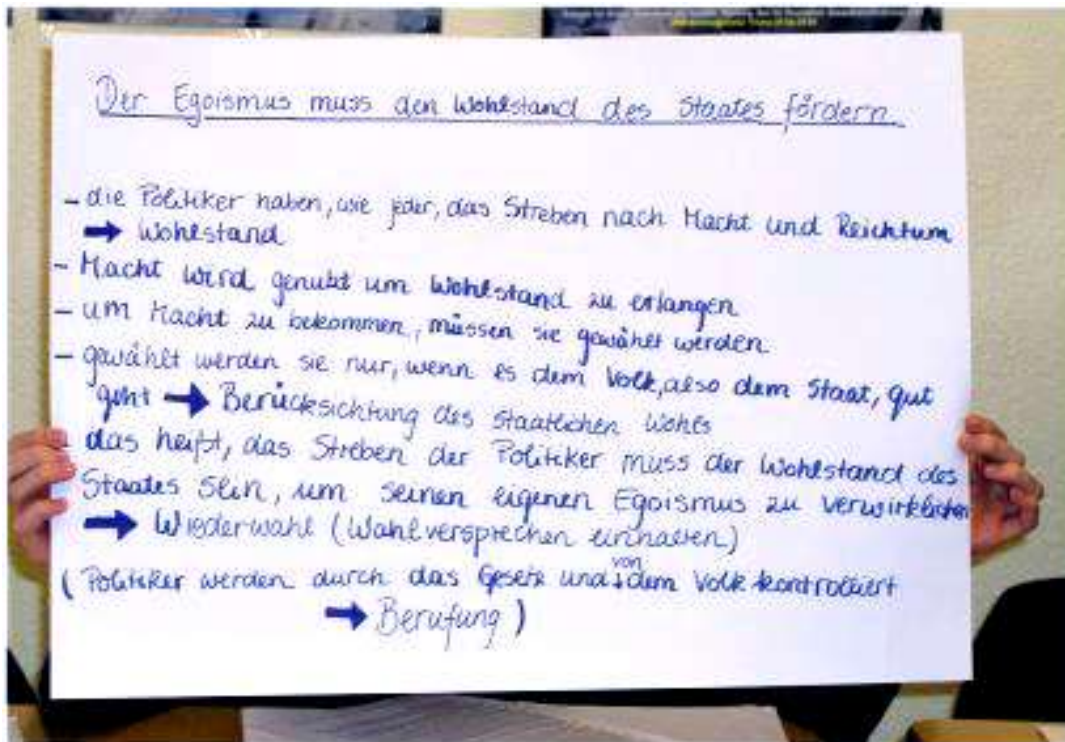 Der Egoismus muss den Wohlstand des Staates fördern.
- die Politiker haben, wie jeder, das Streben nach Macht und Reichtum
➡ Wohlstand
- Macht wird genutzt um Wohlstand zu erlangen
- um Macht zu bekommen, müssen sie gewählt werden
- gewählt werden sie nur, wenn es dem Volk, also dem Staat, gut
geht ➡ Berücksichtung des staatlichen Wohls
- das heißt, das Streben der Politiker muss der Wohlstand des
Staates sein, um seinen eigenen Egoismus zu verwirklichen
➡ Wiederwahl (Wahlversprechen einhalten)
(Politiker werden durch das Gesetz und von dem Volk kontrolliert
➡ Berufung)